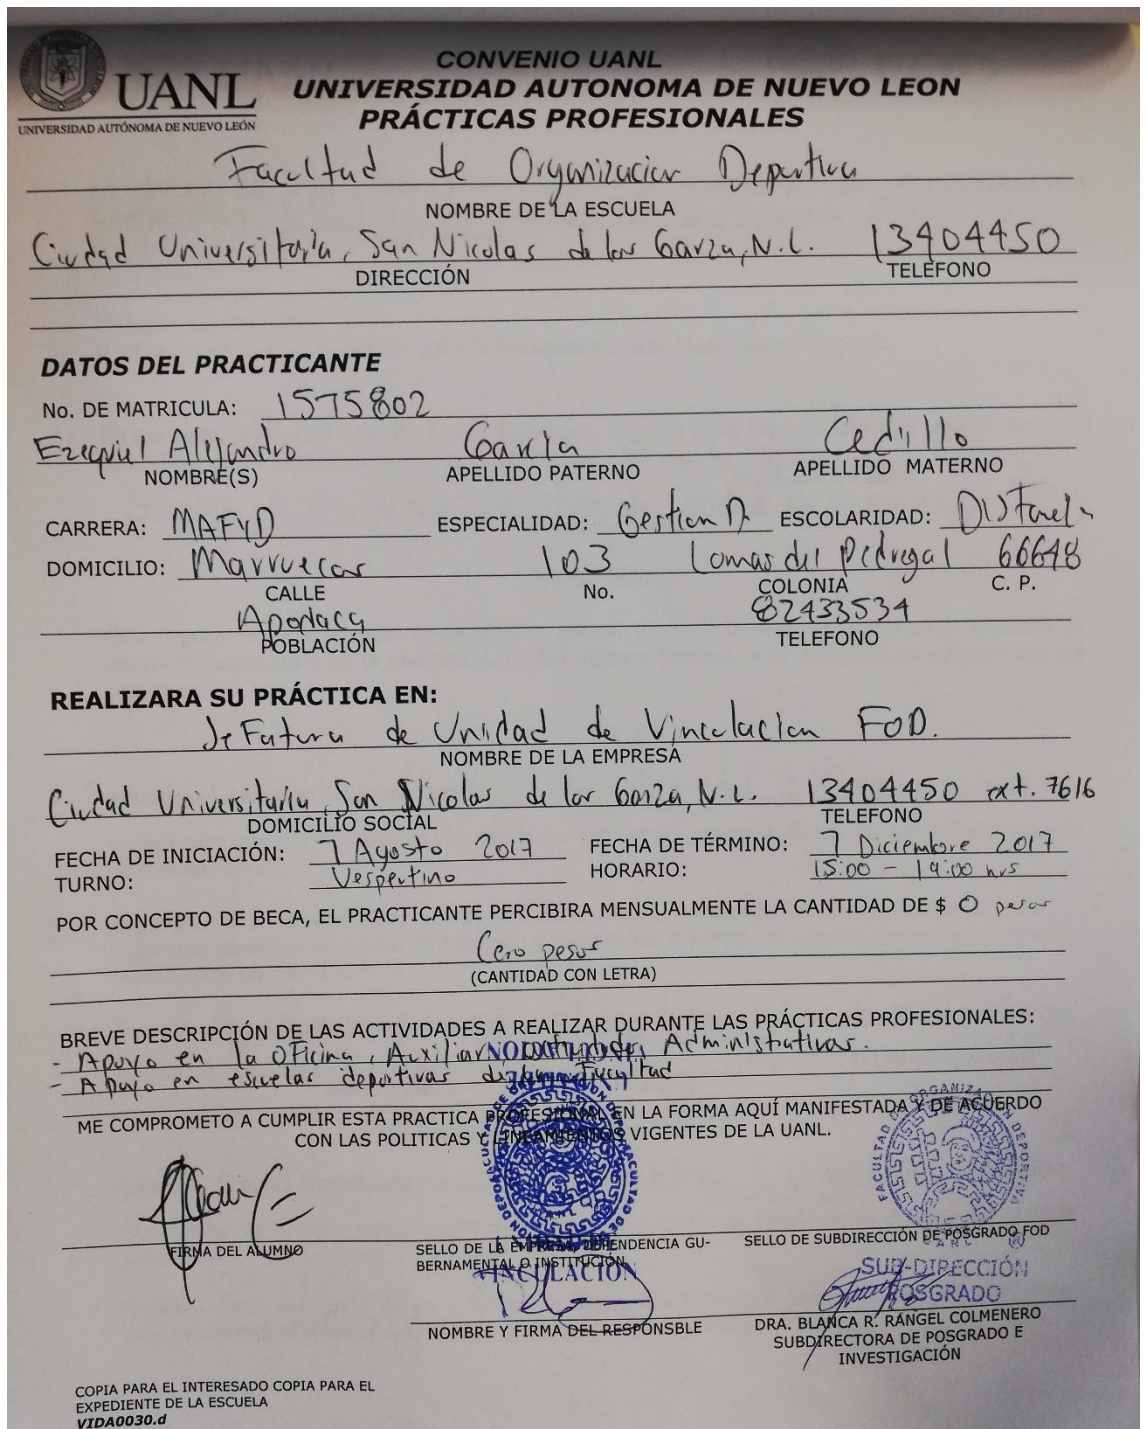 CONVENIO UANL
UANL
UNIVERSIDAD AUTÓNOMA DE NUEVO LEÓN
UNIVERSIDAD AUTONOMA DE NUEVO LEON
PRÁCTICAS PROFESIONALES
Facultad de Organizacion Deportiva
NOMBRE DE LA ESCUELA
Ciudad Universitaria, San Nicolas de los Garza, N.L. 13404450
DIRECCIÓN TELEFONO
DATOS DEL PRACTICANTE
No. DE MATRICULA: 1575802
Ezequiel Alejandro Garcia Cedillo
NOMBRE(S) APELLIDO PATERNO APELLIDO MATERNO
CARRERA: MAFYD ESPECIALIDAD: Gestion D. ESCOLARIDAD:
DOMICILIO: Marruecos 103 Lomas del Pedregal 66648
CALLE No. COLONIA C. P.
Apodaca 82433534
POBLACIÓN TELEFONO
REALIZARA SU PRÁCTICA EN:
Jefatura de Unidad de Vinculacion FOD.
NOMBRE DE LA EMPRESA
Ciudad Universitaria, San Nicolas de los Garza, N.L. 13404450 ext. 7616
DOMICILIO SOCIAL TELEFONO
FECHA DE INICIACIÓN: 7 Agosto 2017 FECHA DE TÉRMINO: 7 Diciembre 2017
TURNO: Vespertino HORARIO: 15:00 - 19:00 hrs
POR CONCEPTO DE BECA, EL PRACTICANTE PERCIBIRA MENSUALMENTE LA CANTIDAD DE $ 0 pesos
Cero pesos
(CANTIDAD CON LETRA)
BREVE DESCRIPCIÓN DE LAS ACTIVIDADES A REALIZAR DURANTE LAS PRÁCTICAS PROFESIONALES:
- Apoyo en la Oficina, Auxiliar Administrativas.
- Apoyo en escuelas deportivas de la Facultad
ME COMPROMETO A CUMPLIR ESTA PRACTICA PROFESIONAL EN LA FORMA AQUÍ MANIFESTADA Y DE ACUERDO
CON LAS POLITICAS Y LINEAMIENTOS VIGENTES DE LA UANL.
FACULTAD DE ORGANIZACION DEPORTIVA
FIRMA DEL ALUMNO
SELLO DE LA EMPRESA, DEPENDENCIA GU-
BERNAMENTAL O INSTITUCIÓN
SELLO DE SUBDIRECCIÓN DE POSGRADO FOD
VINCULACIÓN
SUB-DIRECCIÓN
POSGRADO
NOMBRE Y FIRMA DEL RESPONSBLE
DRA. BLANCA R. RANGEL COLMENERO
SUBDIRECTORA DE POSGRADO E
INVESTIGACIÓN
COPIA PARA EL INTERESADO COPIA PARA EL
EXPEDIENTE DE LA ESCUELA
VIDA0030.d